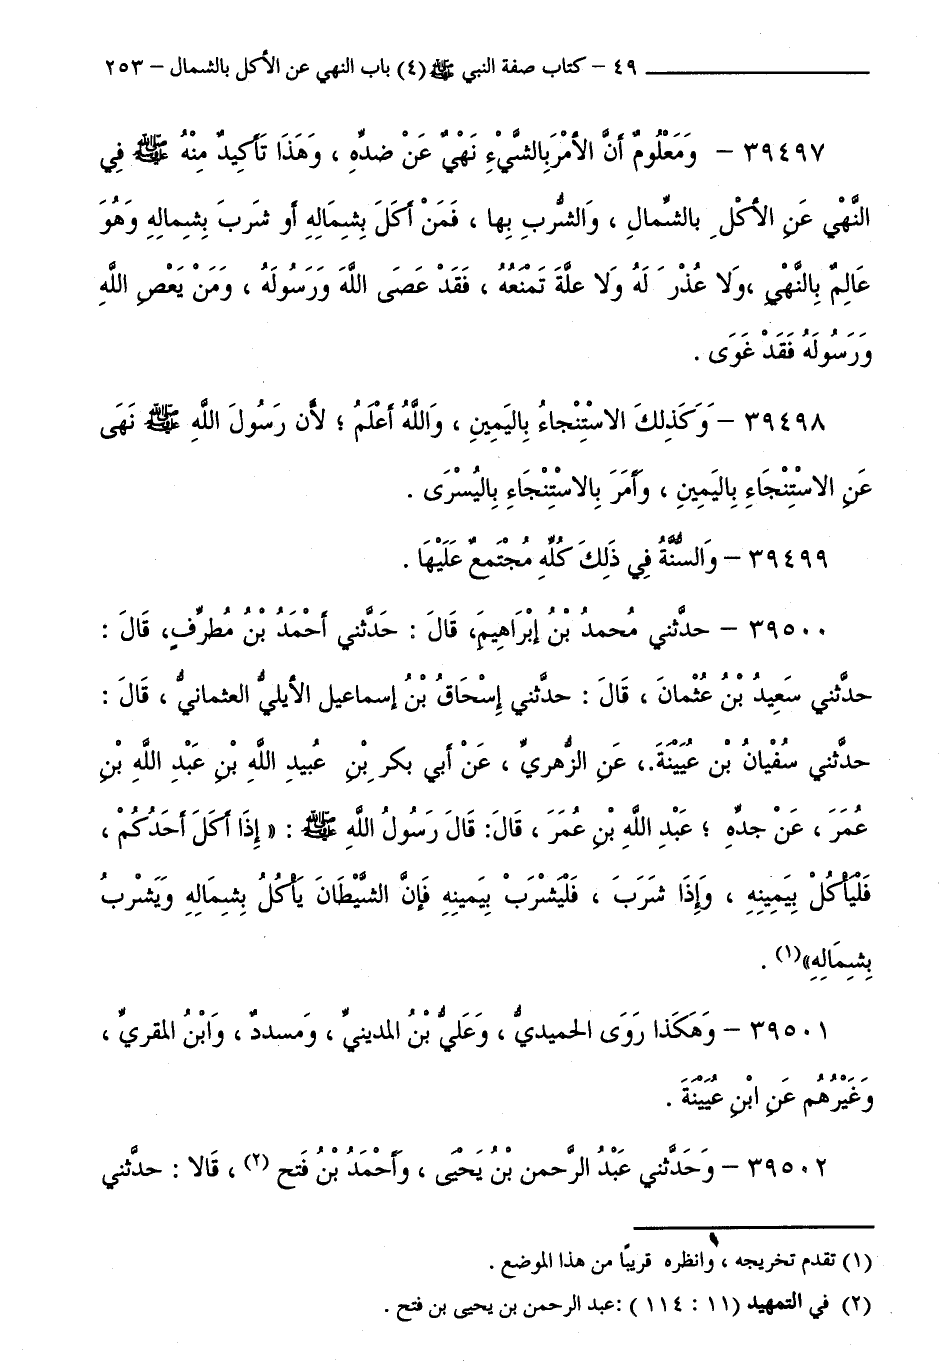 ٤٩ – كتاب صفة النبي ﷺ (٤) باب النهي عن الأكل بالشمال – ٢٥٣
٣٩٤٩٧ – وَمَعْلُومٌ أَنَّ الأَمْرَ بِالشَّيْءِ نَهْيٌ عَنْ ضدِّهِ ، وَهَذَا تَأكِيدٌ مِنْهُ ﷺ فِي
النَّهْيِ عَنِ الأكْلِ بالشِّمالِ ، وَالشُّربِ بِها ، فَمَنْ أكَلَ بِشِمَالِهِ أو شَربَ بِشِمالِهِ وَهُوَ
عَالِمٌ بِالنَّهْيِ ،وَلا عُذْرَ لَهُ وَلا علَّةَ تَمْنَعُهُ ، فَقَدْ عَصَى اللَّهَ وَرَسُولَهُ ، وَمَنْ يَعْصِ اللَّهِ
وَرَسُولَهُ فَقَدْ غَوَى .
٣٩٤٩٨ – وَكَذلِكَ الاسْتِنْجاءُ بِاليَمِينِ ، وَاللَّهُ أعْلَمُ ؛ لأَن رَسُولَ اللَّهِ ﷺ نَهَى
عَنِ الاسْتِنْجَاءِ بِاليَمِينِ ، وَأَمَرَ بِالاسْتِنْجَاءِ بِاليُسْرَى .
٣٩٤٩٩ – وَالسُّنَّةُ فِي ذَلِكَ كُلِّهِ مُجْتَمعٌ عَلَيْهَا .
٣٩٥٠٠ – حدثَّني مُحمدُ بْنُ إبْرَاهِيمَ، قَالَ : حَدثَّني أحْمَدُ بْنُ مُطرِّفٍ، قَالَ :
حدَّثني سَعِيدُ بْنُ عُثْمانَ ، قَالَ : حدَّثني إِسْحَاقُ بْنُ إسماعيل الأيليُّ العثمانيُّ ، قَالَ :
حدَّثني سُفْيانُ بْن عُيَيْنَةَ.، عَنِ الزُّهريِّ ، عَنْ أبي بكر بْنِ عُبيدِ اللَّهِ بْنِ عَبْدِ اللَّهِ بْنِ
عُمَرَ ، عَنْ جدِّهِ ؛ عَبْدِ اللَّهِ بْنِ عُمَرَ ، قَالَ: قَالَ رَسُولُ اللَّهِ ﷺ : « إِذَا أكَلَ أحَدُكُمْ ،
فَلْيَأْكُلْ بِيَمِينِهِ ، وَإِذَا شَرَبَ ، فَلْيَشْرَبْ بِيَمينِهِ فَإِنَّ الشَّيْطَانَ يَأْكُلُ بِشِمَالِهِ وَيَشْربُ
بِشِمَالِهِ»(١) .
٣٩٥٠١ – وَهَكَذا رَوَى الحميديُّ ، وَعَليُّ بْنُ المدينيِّ ، وَمسددٌ ، وَابْنُ المقريِّ ،
وَغَيْرُهُم عَنِ ابْنِ عُيَيْنَةَ .
٣٩٥٠٢ – وَحَدَّثني عَبْدُ الرَّحمن بْنُ يَحْيَى ، وَأَحْمَدُ بْنُ فَتح (٢) ، قَالا : حدَّثني
(١) تقدم تخريجه ، وانظره قريبًا من هذا الموضع .
(٢) في التمهيد (١١ : ١١٤ ) :عبد الرحمن بن يحيى بن فتح .